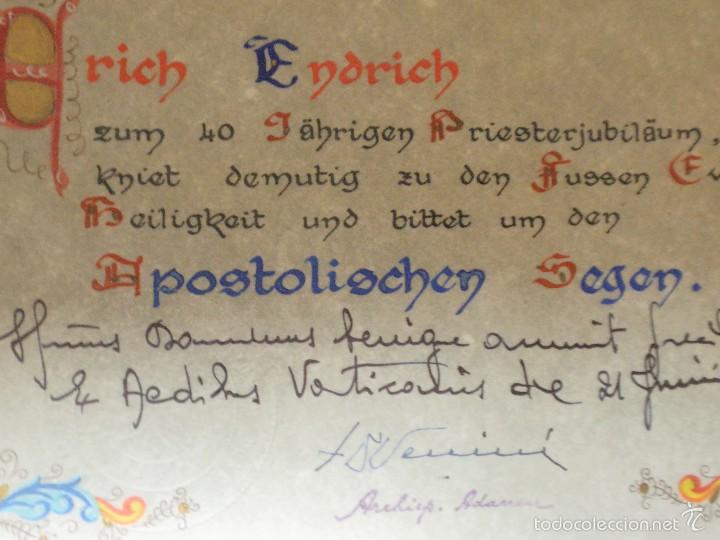 Erich Endrich
zum 40 Jährigen Priesterjubiläum,
kniet demutig zu den Fussen
Heiligkeit und bittet um den
Apostolischen Segen.
benigne annuit
Ex Aedibus Vaticanis die 21
Archiep.
todocoleccion.net